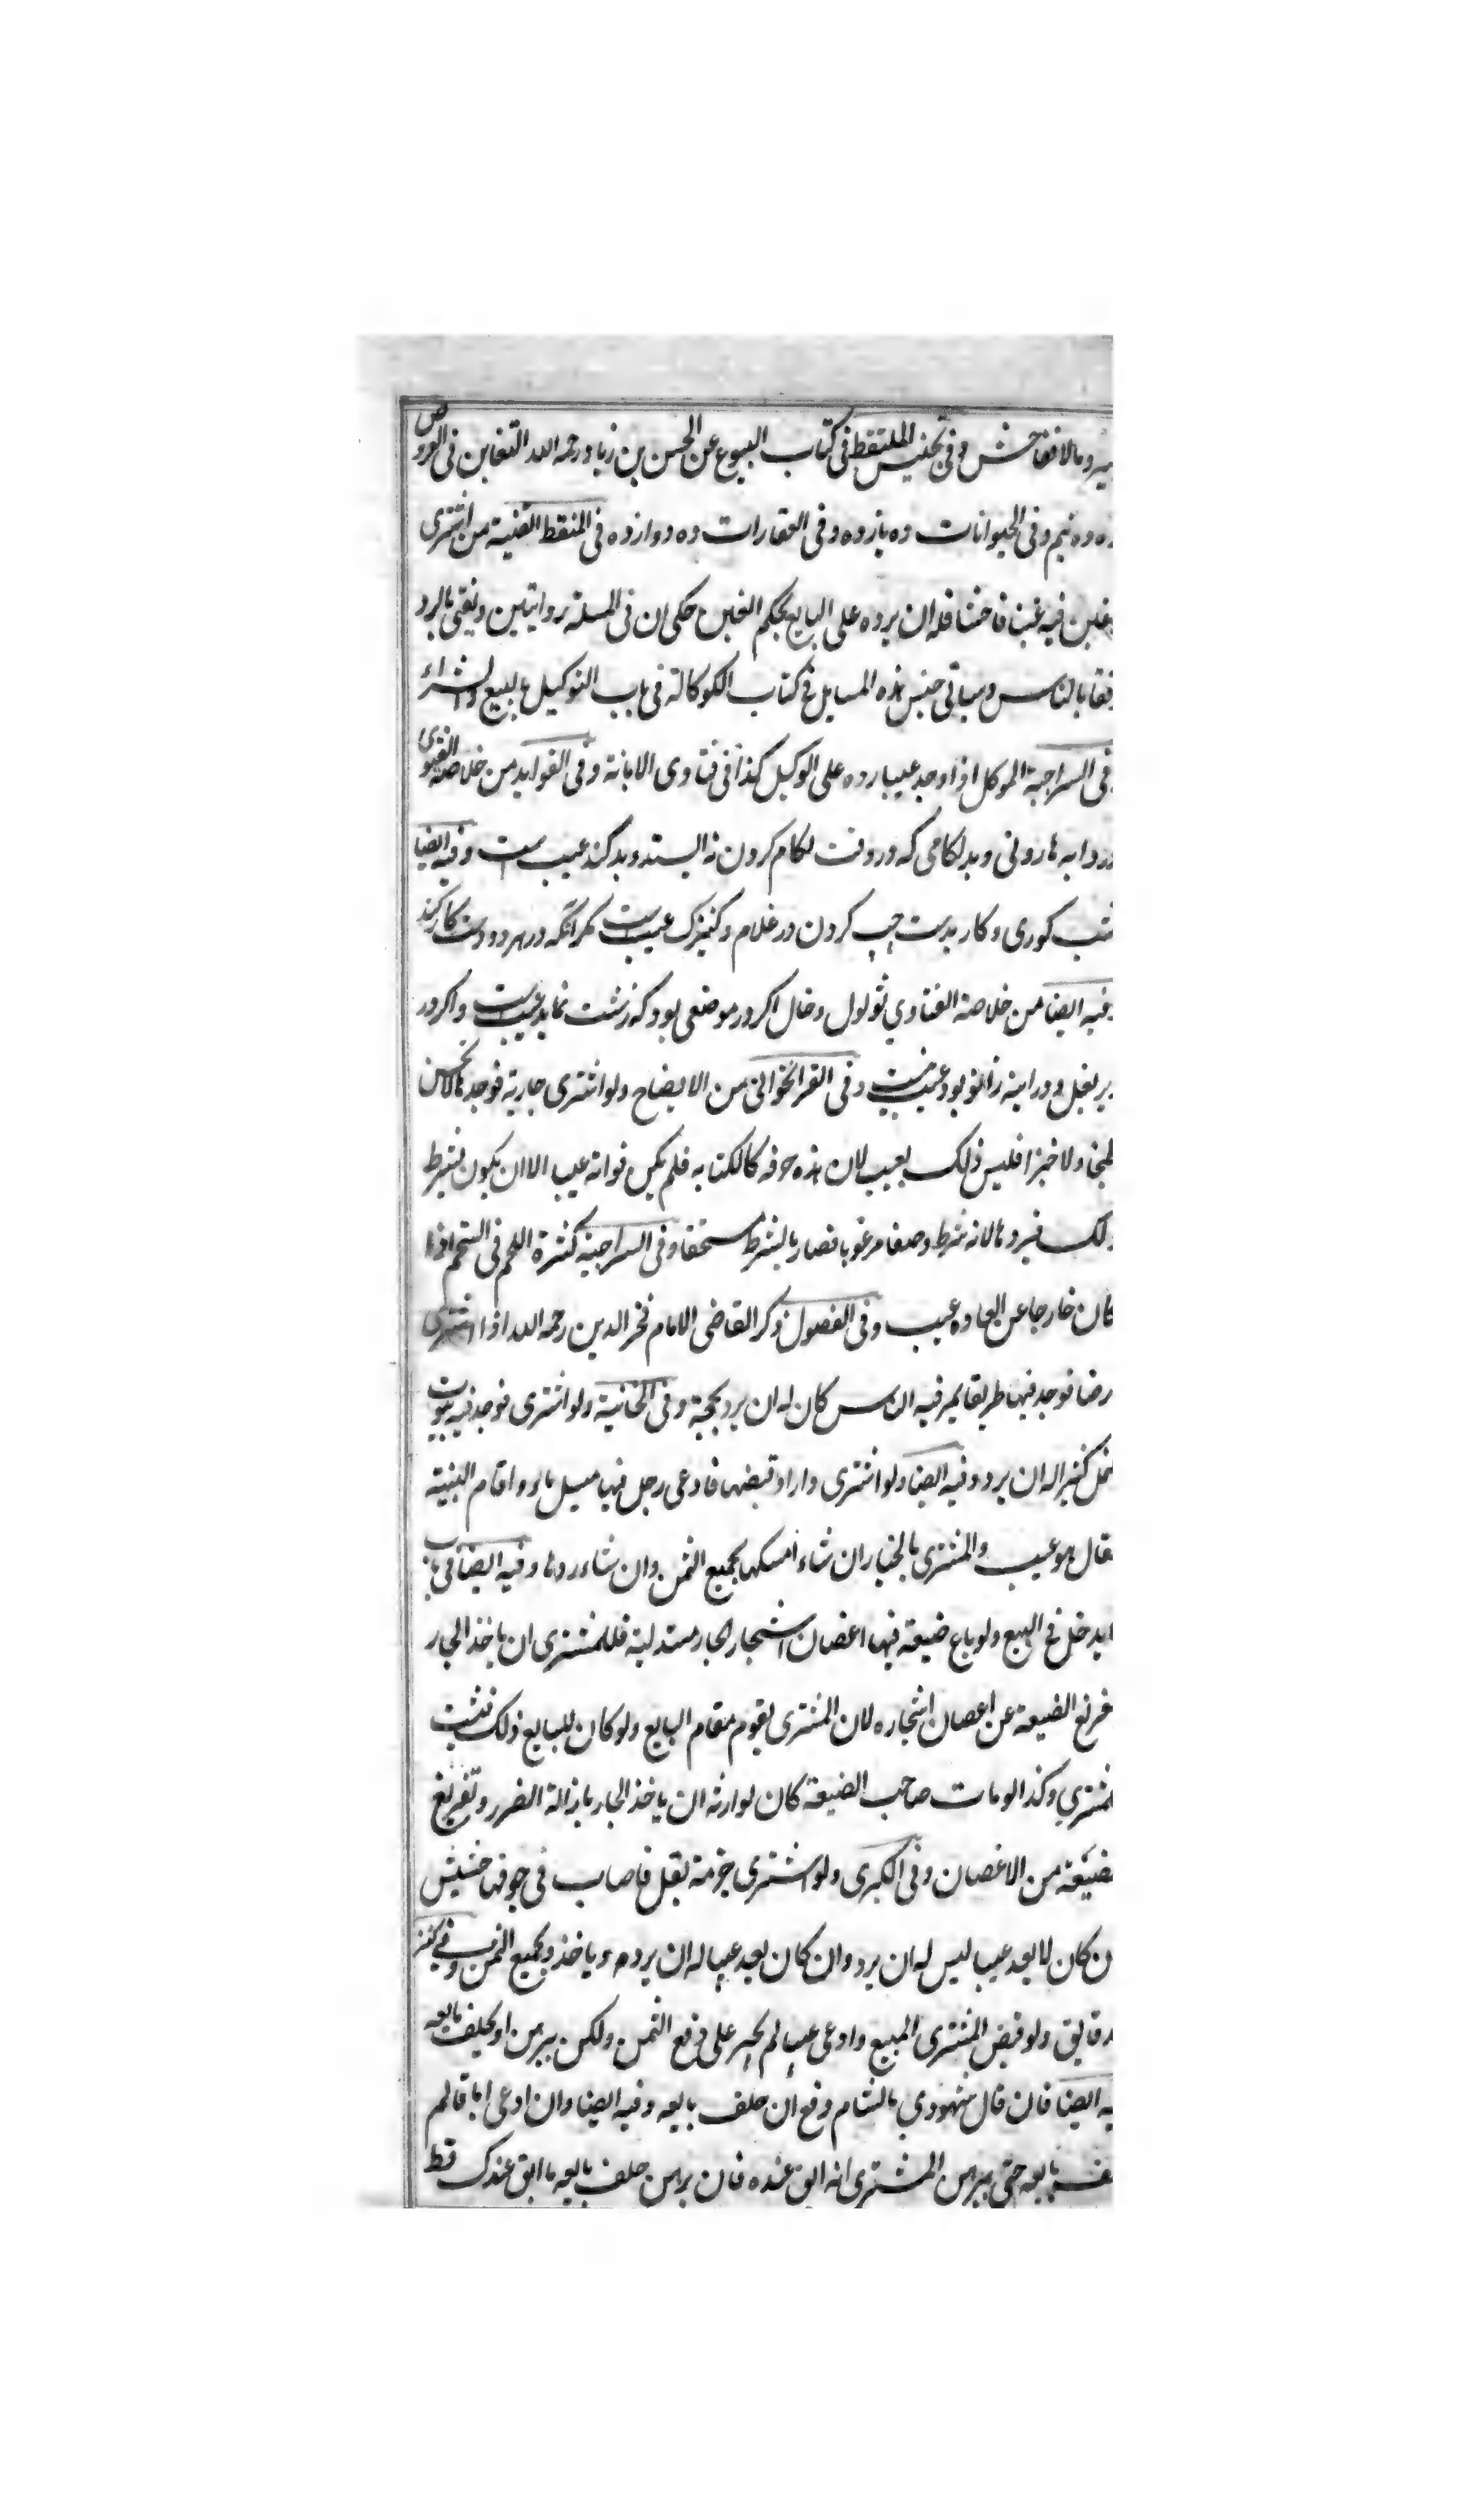 يسير وما لا ففاحش وفي تجنيس الملتقط في كتاب البيوع عن الحسن بن زياد رحمه الله التغابن في العروض
ده ده نيم وفي الحيوانات ده يازده وفي العقارات ده دوازده في المنقط القنية من اشترى
بغبن فيه غبنا فاحشا فله ان يرده على البايع بحكم الغبن حكى ان في المسئلة روايتين ويفتى بالرد
رفقا بالناس وسياتي جنس هذه المسايل في كتاب الكوكالة في باب التوكيل بالبيع والشراء
في السراجية الموكل اذا وجد عيبا رده على الوكيل كذا في فتاوى الابانة وفي الفوايد من خلاصة الفتوى
دردابه هاروني وبد لكامى كه در وقت لكام كردن نه ايستد وبد كند عيب است وفيه ايضا
شب كورى وكار بدست چپ كردن در غلام وكنيزك عيب است مكر آنكه در هر دو دست كار كند
فيه ايضا من خلاصة الفتاوي ثولول وخال اكر در موضعى بود كه زشت نمايد عيب است واكر در
زير بغل ودرا ينه زانو بود عيب نيست وفي القراخواني من الايضاح ولو اشترى جارية فوجدها لا تحسن
طبخا ولا خبزا فليس ذلك بعيب لان هذه حرفه كالكتابه فلم يكن فواته عيب الا ان يكون بشرط
ذلك فيردها لانه شرط وصفا مرغوبا فصار بالشرط مستحقا وفي السراجية كثرة اللحم في الشحم اذا
كان خارجا عن العاده عيب وفي الفصول ذكر القاضى الامام فخر الدين رحمه الله اذا اشترى
ارضا فوجد فيها طريقا يمر فيه الناس كان له ان يرد بحجة وفي الخانية ولو اشترى فوجد فيه بيوت
نمل كثير له ان يرد وفيه ايضا ولو اشترى دارا وقبضها فادعى رجل فيها مسيل ماء واقام البينة
فقال هو عيب والمشترى بالخيار ان شاء امسكها بجميع الثمن وان شاء ردها وفيه ايضا في باب
ما يدخل في البيع ولو باع ضيعة فيها اغصان اشجار الجار مستدلية فللمشترى ان ياخذ الجار
بتفريغ الضيعة عن اعصان اشجاره لان المشترى يقوم مقام البايع ولو كان للبايع ذلك فثبت
للمشتري وكذا لو مات صاحب الضيعة كان لوارثه ان ياخذ الجار بازالة الضرر وتفريغ
الضيعة من الاغصان وفي الكبرى ولو اشترى حزمة بقل فاصاب في جوفها حشيش
ان كان لا يعد عيبا ليس له ان يرد وان كان يعد عيبا له ان يرده وياخذ بجميع الثمن وفي كنز
الدقايق ولو قبض المشترى المبيع وادعى عيبا لم يجبر على دفع الثمن ولكن يبرهن او يحلف بايعه
فيه ايضا فان قال شهودي بالشام دفع ان حلف بايعه وفيه ايضا وان ادعى اباقا لم
يحلف بايعه حتى يبرهن المشترى انه ابق عنده فان برهن حلف بايعه ما ابق عندك قط